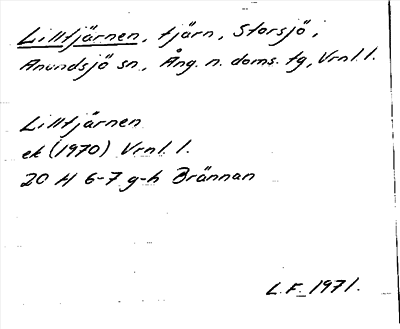 Lilltjärnen, tjärn, Storsjö i
Anundsjö sn., Ång. n. doms. tg, Vrnl. l.
Lilltjärnen
ek (1970) Vrnl. l.
20 H 6-7 g-h Brännan
L.F. 1971.